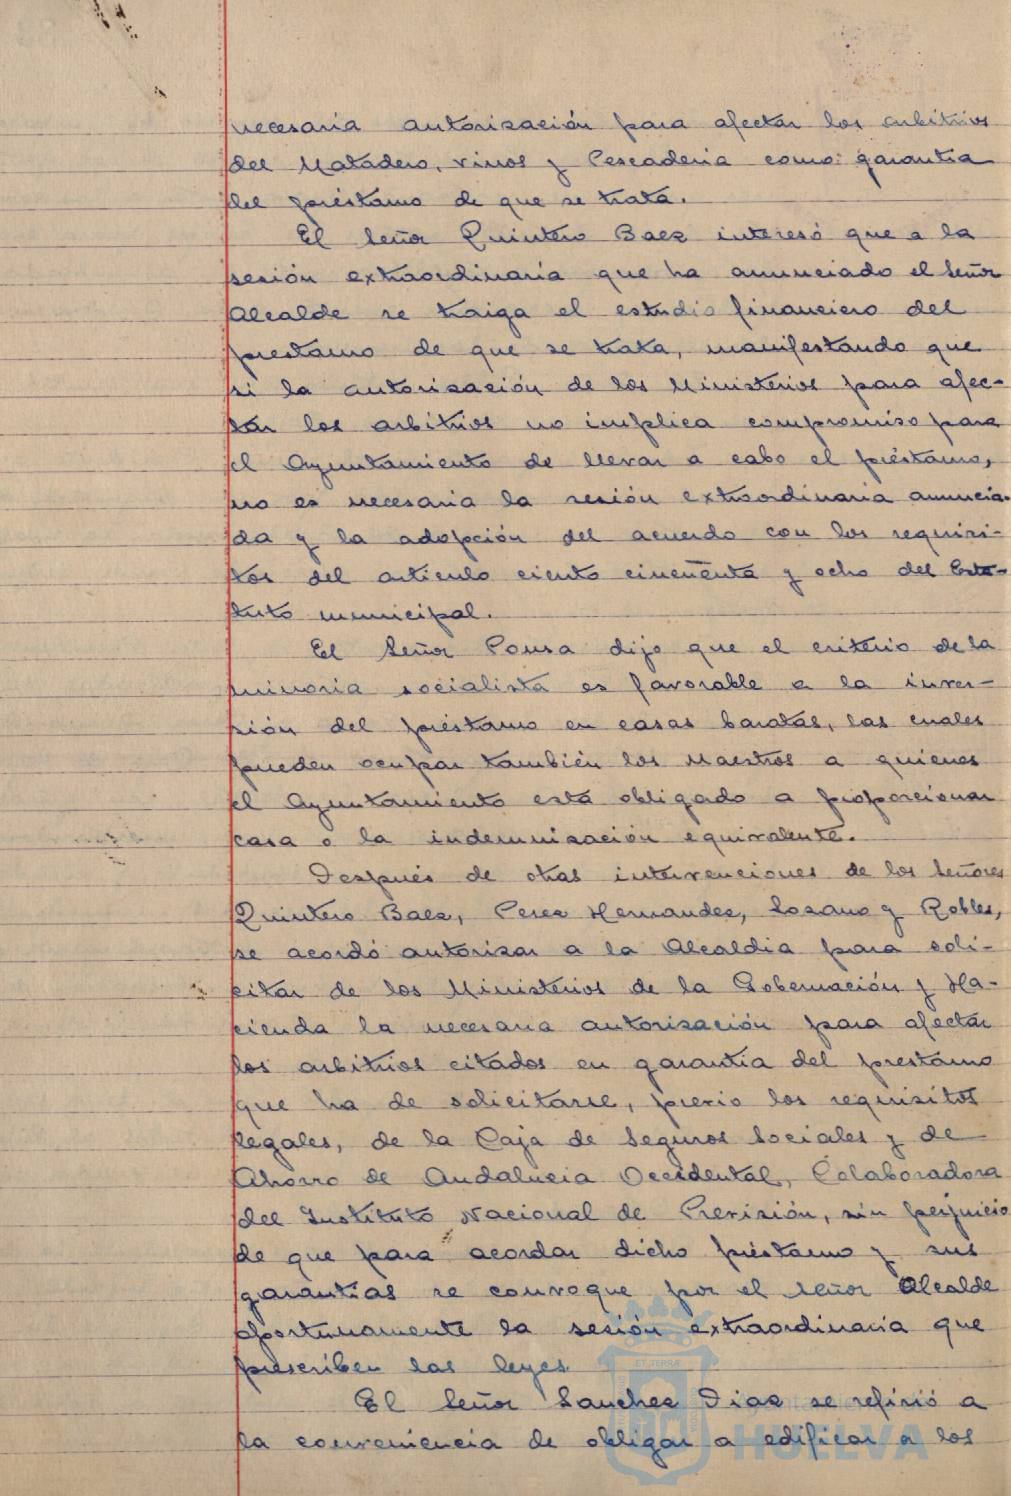 necesaria autorización para afectar los arbitrios
del Matadero, vinos y Pescadería como garantía
del préstamo de que se trata.
El Señor Quintero Baez interesó que a la
sesión extraordinaria que ha anunciado el Señor
Alcalde se traiga el estudio financiero del
prestamo de que se trata, manifestando que
si la autorización de los Ministerios para afec-
tar los arbitrios no implica compromiso para
el Ayuntamiento de llevar a cabo el préstamo,
no es necesaria la sesión extraordinaria anuncia-
da y la adopción del acuerdo con los requisi-
tos del artículo ciento cincuenta y ocho del Esta-
tuto municipal.
El Señor Ponsa dijo que el criterio de la
minoria socialista es favorable a la inver-
sión del préstamo en casas baratas, las cuales
pueden ocupar también los Maestros a quienes
el Ayuntamiento está obligado a proporcionar
casa o la indemnización equivalente.
Después de otras intervenciones de los Señores
Quintero Baez, Perez Hernandez, Lozano y Robles,
se acordó autorizar a la Alcaldia para soli-
citar de los Ministerios de la Gobernación y Ha-
cienda la necesaria autorización para afectar
los arbitrios citados en garantía del prestamo
que ha de solicitarse, previo los requisitos
legales, de la Caja de Seguros Sociales y de
Ahorro de Andalucia Occidental, Colaboradora
del Instituto Nacional de Previsión, sin perjuicio
de que para acordar dicho préstamo y sus
garantías se convoque por el señor Alcalde
oportunamente la sesión extraordinaria que
prescriben las leyes
El Señor Sanchez Diaz se refirió a
la conveniencia de obligar a edificar a los
HUELVA